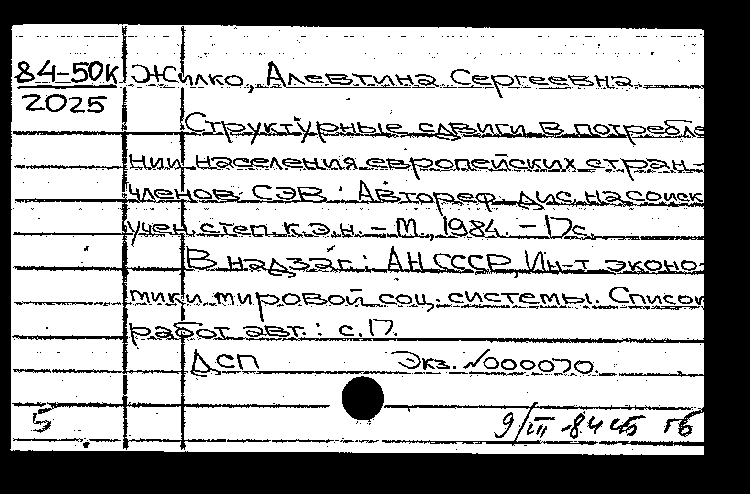 84-50к Жилко, Алевтина Сергеевна
2025
Структурные сдвиги в потребле
нии населения европейских стран-
членов СЭВ : Автореф. дис. на соиск
учен. степ. к.э.н. - М., 1984. - 17с.
В надзаг.: АН СССР, Ин-т эконо-
мики мировой соц. системы. Список
работ авт.: с.17.
ДСП Экз. №000070.
5 9/III-84